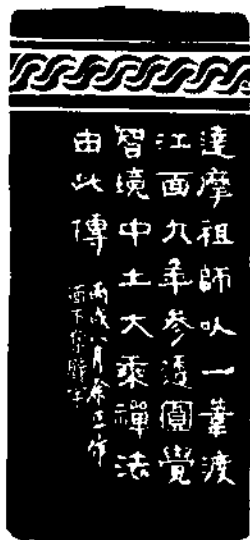 達摩祖師以一葦渡
江面九年参透圓覺
智境中土大乘禪法
由此傳
丙戌八月